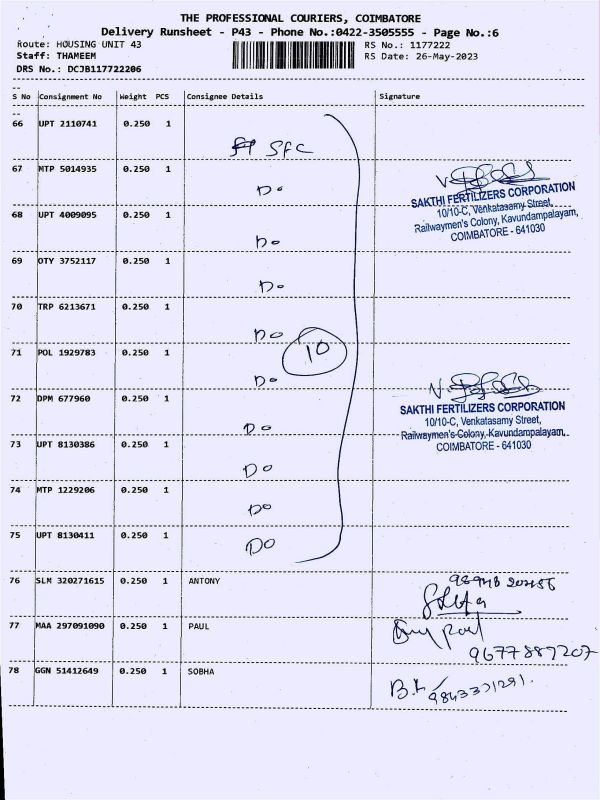 THE PROFESSIONAL COURIERS, COIMBATORE
Delivery Runsheet - P43 - Phone No.:0422-3505555 - Page No.:6
Route: HOUSING UNIT 43 RS No.: 1177222
Staff: THAMEEM RS Date: 26-May-2023
DRS No.: DCJB117722206
S No Consignment No Weight PCS Consignee Details Signature
66 UPT 2110741 0.250 1
SFC
67 MTP 5014935 0.250 1
Do
SAKTHI FERTILIZERS CORPORATION
10/10-C, Venkatasamy Street,
Railwaymen's Colony, Kavundampalayam,
COIMBATORE - 641030
68 UPT 4009095 0.250 1
Do
69 OTY 3752117 0.250 1
Do
70 TRP 6213671 0.250 1
Do
10
71 POL 1929783 0.250 1
Do
72 DPM 677960 0.250 1
Do
SAKTHI FERTILIZERS CORPORATION
10/10-C, Venkatasamy Street,
Railwaymen's Colony, Kavundampalayam,
COIMBATORE - 641030
73 UPT 8130386 0.250 1
Do
74 MTP 1229206 0.250 1
Do
75 UPT 8130411 0.250 1
Do
76 SLM 320271615 0.250 1 ANTONY
77 MAA 297091090 0.250 1 PAUL
9677889207
78 GGN 51412649 0.250 1 SOBHA
9843371291.